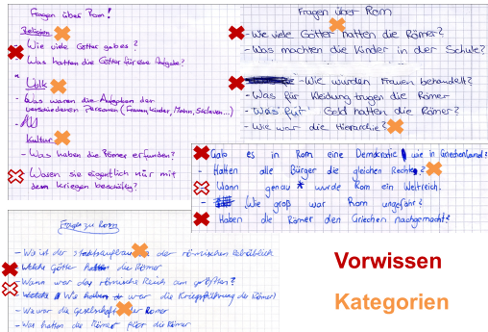 Fragen über Rom!
Religion
- Wie viele Götter gab es?
Was hatten die Götter für eine Aufgabe?
Volk
- Was waren die Aufgaben der
verschiedenen Personen (Frauen, Kinder, Männ, Sklaven...)
Kultur
- Was haben die Römer erfunden?
Waren sie eigentlich nur mit
dem kriegen beschäftig?
Fragen über Rom
- Wie viele Götter hatten die Römer?
- Was machten die Kinder in der Schule?
- Wie wurden Frauen behandelt?
- Was für Kleidung trugen die Römer
- Was für Geld hatten die Römer?
- Wie war die Hierarchie?
Gab es in Rom eine Demokratie wie in Griechenland?
- Hatten alle Bürger die gleichen Rechte?
Wann genau wurde Rom ein Weltreich.
- Wie groß war Rom ungefähr?
Haben die Römer den Griechen nachgemacht?
Fragen zu Rom
- Wo ist der der römischen Republick
Welche Götter hatten die Römer
- Wann war das römische Reich am größten?
Wie war die Kriegsführung der Römer)
- Wie war die Gesellschaft der Römer
- Was hatten die Römer für die Römer
Vorwissen
Kategorien